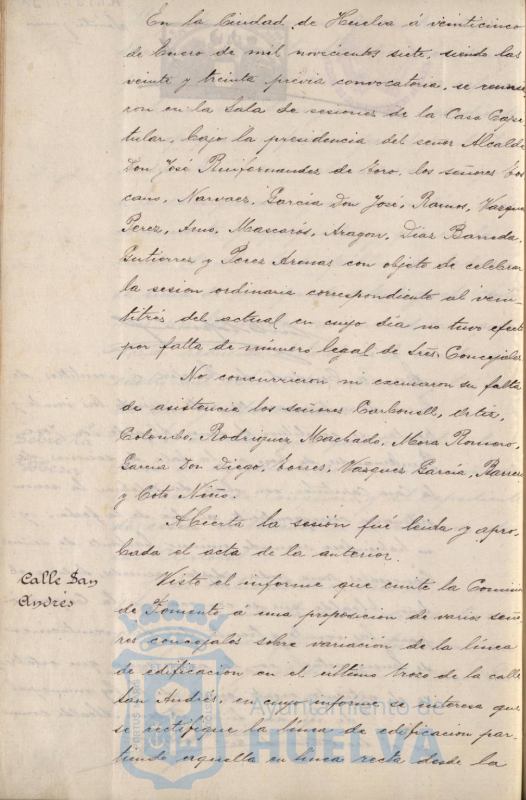 En la Ciudad de Huelva á veinticinco
de Enero de mil novecientos siete, siendo las
veinte y treinta previa convocatoria, se reunie
ron en la Sala de sesiones de la Casa Capi
tular, bajo la presidencia del señor Alcalde
Don José Ruifernandez de Toro, los señores Tos
cano, Narvaez, Garcia Don José, Ramos, Vazquez
Perez, Amo, Mascarós, Aragon, Diaz Barreda,
Gutierrez y Perez Arenas con objeto de celebrar
la sesion ordinaria correspondiente al vein
titres del actual en cuyo dia no tuvo efecto
por falta de número legal de Sres Concejales
No concurrieron ni excusaron su falta
de asistencia los señores Carbonell, Ortiz,
Colombo, Rodriguez Machado, Mora Romero,
Garcia Don Diego, Torres, Vazquez Garcia, Barrera
y Coto Niño.
Abierta la sesión fué leida y apro
bada el acta de la anterior.
Calle San
Andrés
Visto el informe que emite la Comision
de Fomento á una proposicion de varios seño
res concejales sobre variación de la línea
de edificacion en el último trozo de la calle
San Andrés, en cuyo informe se interesa que
se rectifique la línea de edificacion par
tiendo aquella en linea recta desde la
Ayuntamiento de
HUELVA